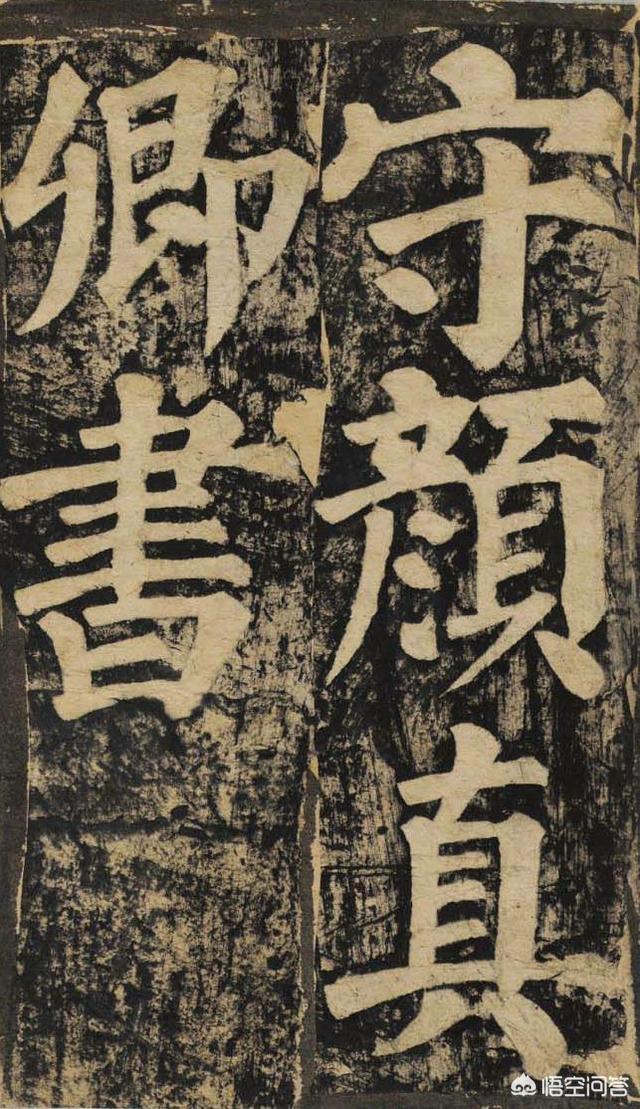 守顔真
卿書
悟空问答